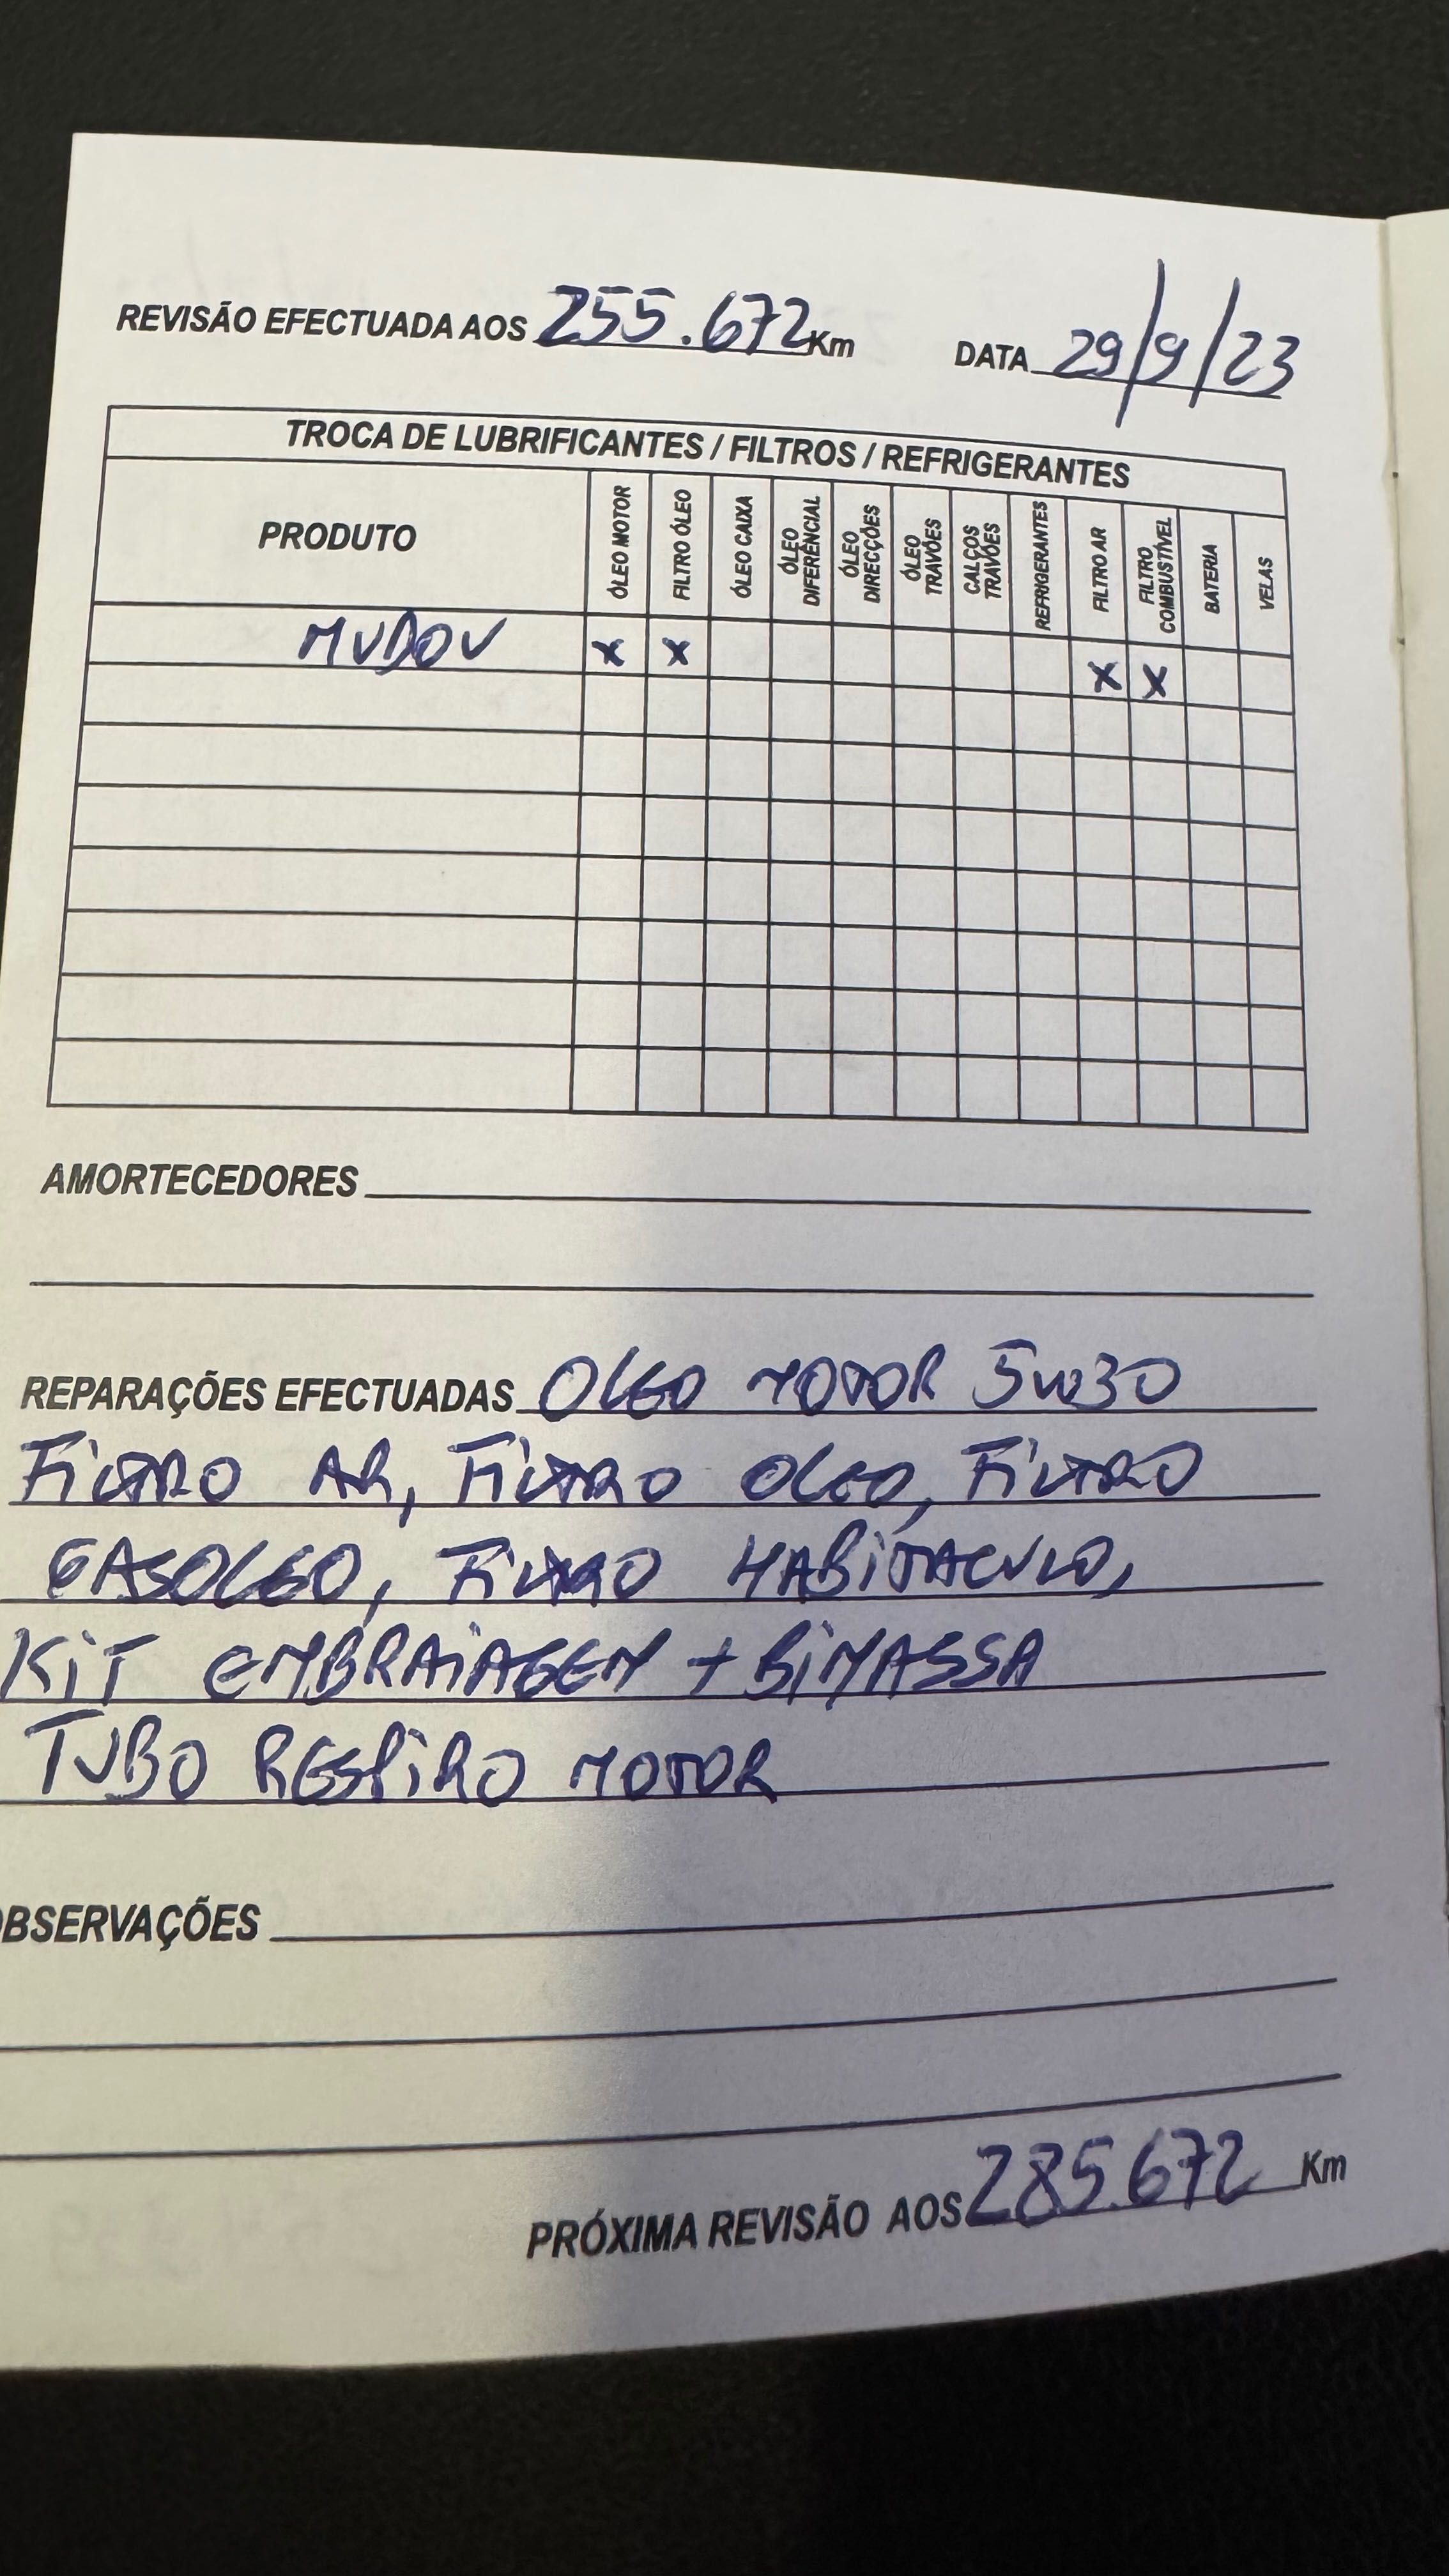 REVISÃO EFECTUADA AOS 255.672 Km DATA 29/9/23
TROCA DE LUBRIFICANTES / FILTROS / REFRIGERANTES
PRODUTO
ÓLEO MOTOR
FILTRO ÓLEO
ÓLEO CAIXA
ÓLEO DIFERÊNCIAL
ÓLEO DIRECÇÕES
ÓLEO TRAVÕES
CALÇOS TRAVÕES
REFRIGERANTES
FILTRO AR
FILTRO COMBUSTÍVEL
BATERIA
VELAS
MUDOU x x x x
AMORTECEDORES
REPARAÇÕES EFECTUADAS OLEO MOTOR 5W30
FILTRO AR, FILTRO OLEO, FILTRO
GASOLEO, FILTRO HABITACULO,
KIT EMBRAIAGEM + BIMASSA
TUBO RESPIRO MOTOR
OBSERVAÇÕES
PRÓXIMA REVISÃO AOS 285.672 Km